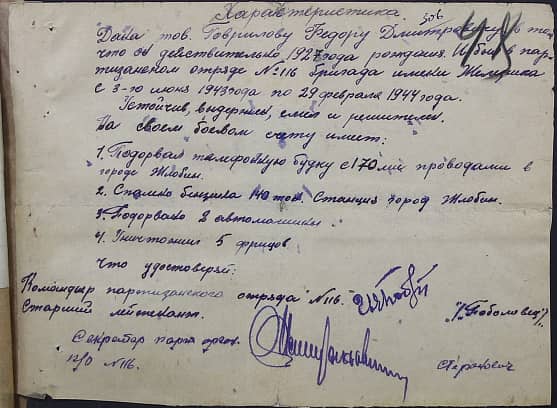 Характеристика
Дана тов. Гаврилову Федору Дмитриевичу в том
что он действительно 1927 года рождения. И был в пар-
тизанском отряде № 116 бригада имени Железняка
с 3-го июня 1943 года по 29 февраля 1944 года.
Устойчив, выдержан, смел и решителен.
На своем боевом счету имеет:
1. Подорвал телефонную будку с 170 ми проводами в
городе Жлобин.
2. Спалено бензина 140 тон. Станция город Жлобин.
3. Подорвано 2 автомашины
4. Уничтожил 5 фрицов
Что удостоверяй:
Командир партизанского отряда № 116.
Старший лейтенант.
Секретар парт орган.
п/о № 116.